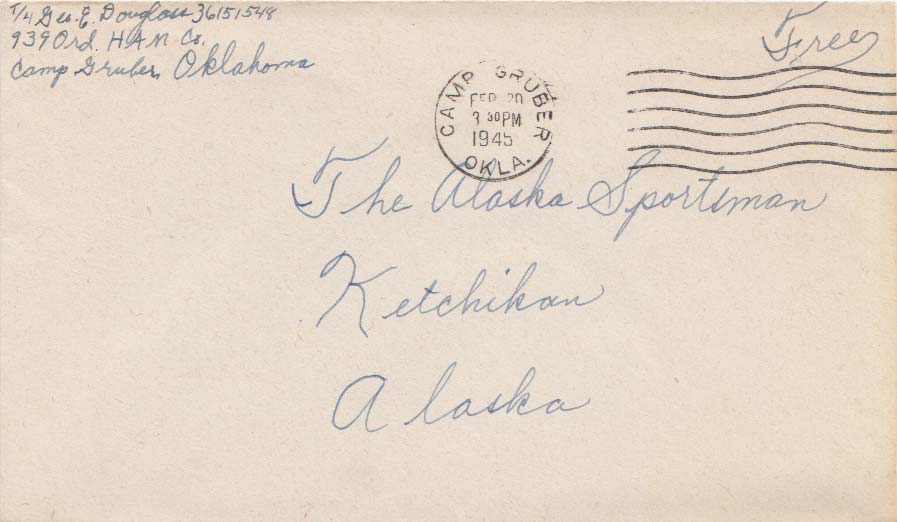 T/4 Geo. E. Douglass 36151548
939 Ord. HAM Co.
Camp Gruber, Oklahoma
Free
CAMP GRUBER
FEB 20
3 30 PM
1945
OKLA.
The Alaska Sportsman
Ketchikan
Alaska